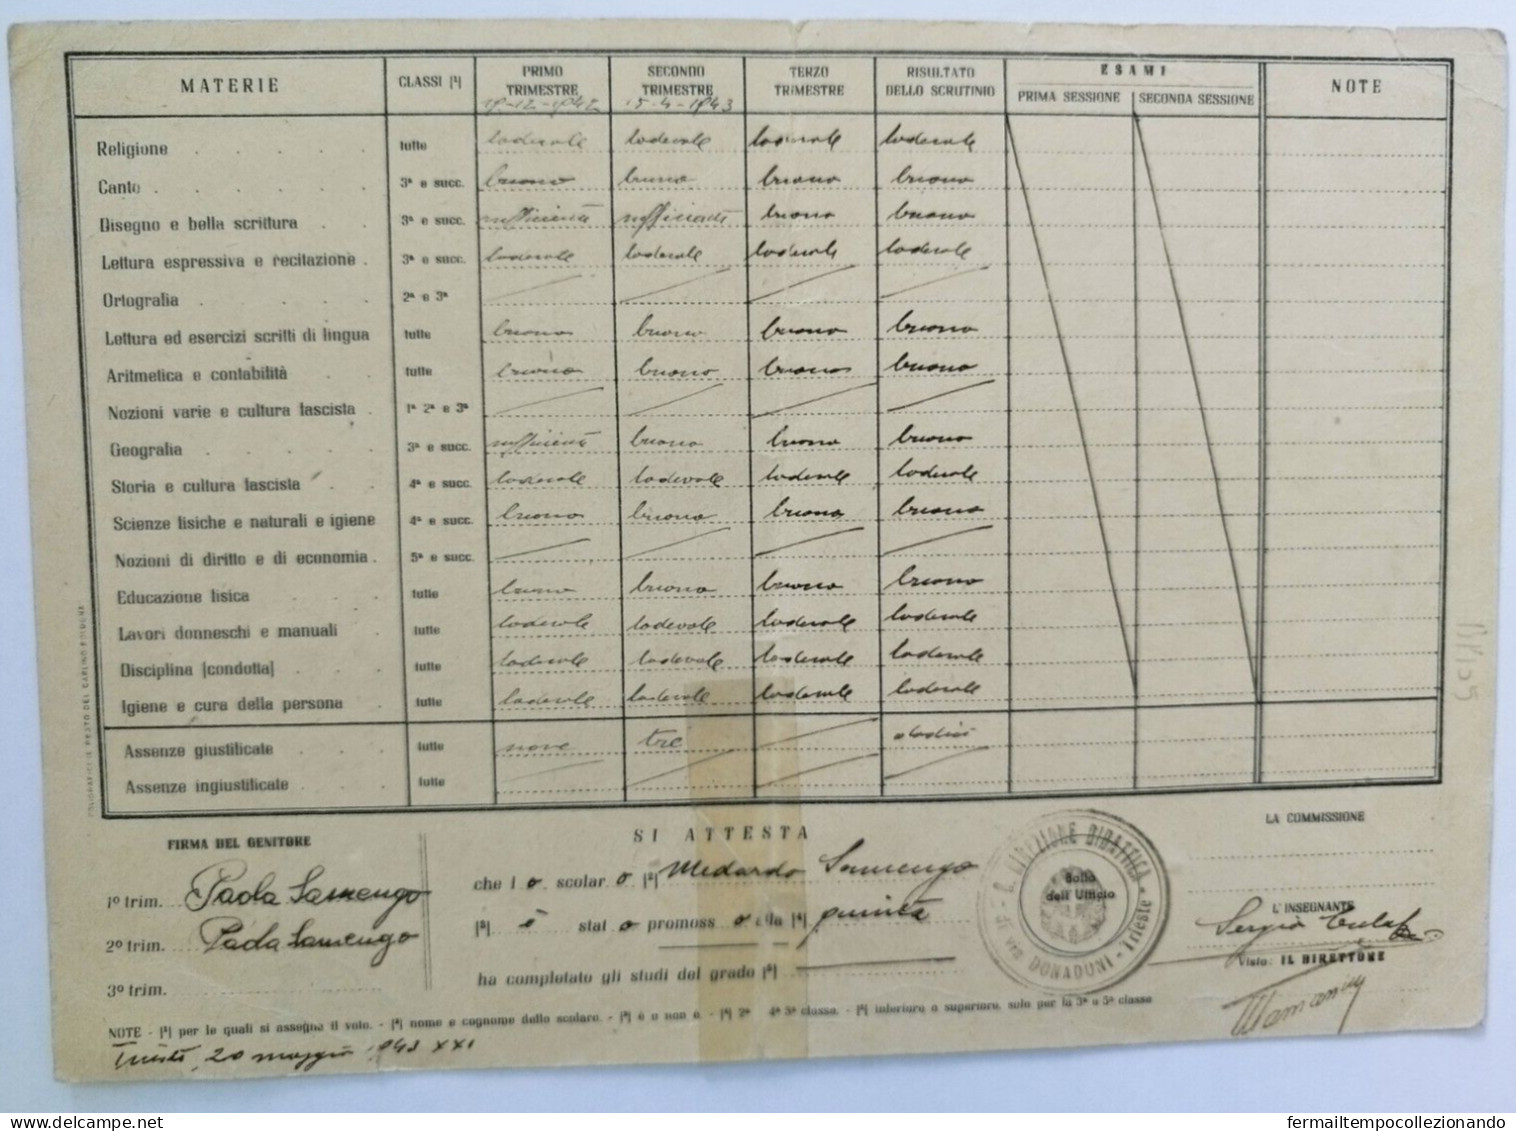 MATERIE CLASSI [¹] PRIMO TRIMESTRE SECONDO TRIMESTRE TERZO TRIMESTRE RISULTATO DELLO SCRUTINIO ESAMI PRIMA SESSIONE SECONDA SESSIONE NOTE
19-12-1942 15-4-1943
Religione tutte lodevole lodevole lodevole lodevole
Canto 3ª e succ. buono buono buono buono
Disegno e bella scrittura 3ª e succ. sufficiente sufficiente buono buono
Lettura espressiva e recitazione 3ª e succ. lodevole lodevole lodevole lodevole
Ortografia 2ª e 3ª
Lettura ed esercizi scritti di lingua tutte buono buono buono buono
Aritmetica e contabilità tutte buono buono buono buono
Nozioni varie e cultura fascista 1ª 2ª e 3ª
Geografia 3ª e succ. sufficiente buono buono buono
Storia e cultura fascista 4ª e succ. lodevole lodevole lodevole lodevole
Scienze fisiche e naturali e igiene 4ª e succ. buono buono buono buono
Nozioni di diritto e di economia 5ª e succ.
Educazione fisica tutte buono buono buono buono
Lavori donneschi e manuali tutte lodevole lodevole lodevole lodevole
Disciplina [condotta] tutte lodevole lodevole lodevole lodevole
Igiene e cura della persona tutte lodevole lodevole lodevole lodevole
Assenze giustificate tutte nove tre dodici
Assenze ingiustificate tutte
FIRMA DEL GENITORE
1º trim. Paola Samengo
2º trim. Paola Samengo
3º trim.
SI ATTESTA
che l o scolar o [²] Medardo Samengo
[³] è stat o promoss o alla [⁴] quinta
ha completato gli studi del grado [⁵]
DIREZIONE DIDATTICA - Trieste - di via DONADONI
Bollo dell'Ufficio
LA COMMISSIONE
L'INSEGNANTE
Sergio
Visto: IL DIRETTORE
NOTE - [¹] per le quali si assegna il voto. - [²] nome e cognome dello scolaro. - [³] è o non è. - [⁴] 2ª 4ª 5ª classe. - [⁵] inferiore o superiore, solo per la 3ª e 5ª classe
Trieste, 20 maggio 1943 XXI
fermailtempocollezionando.com